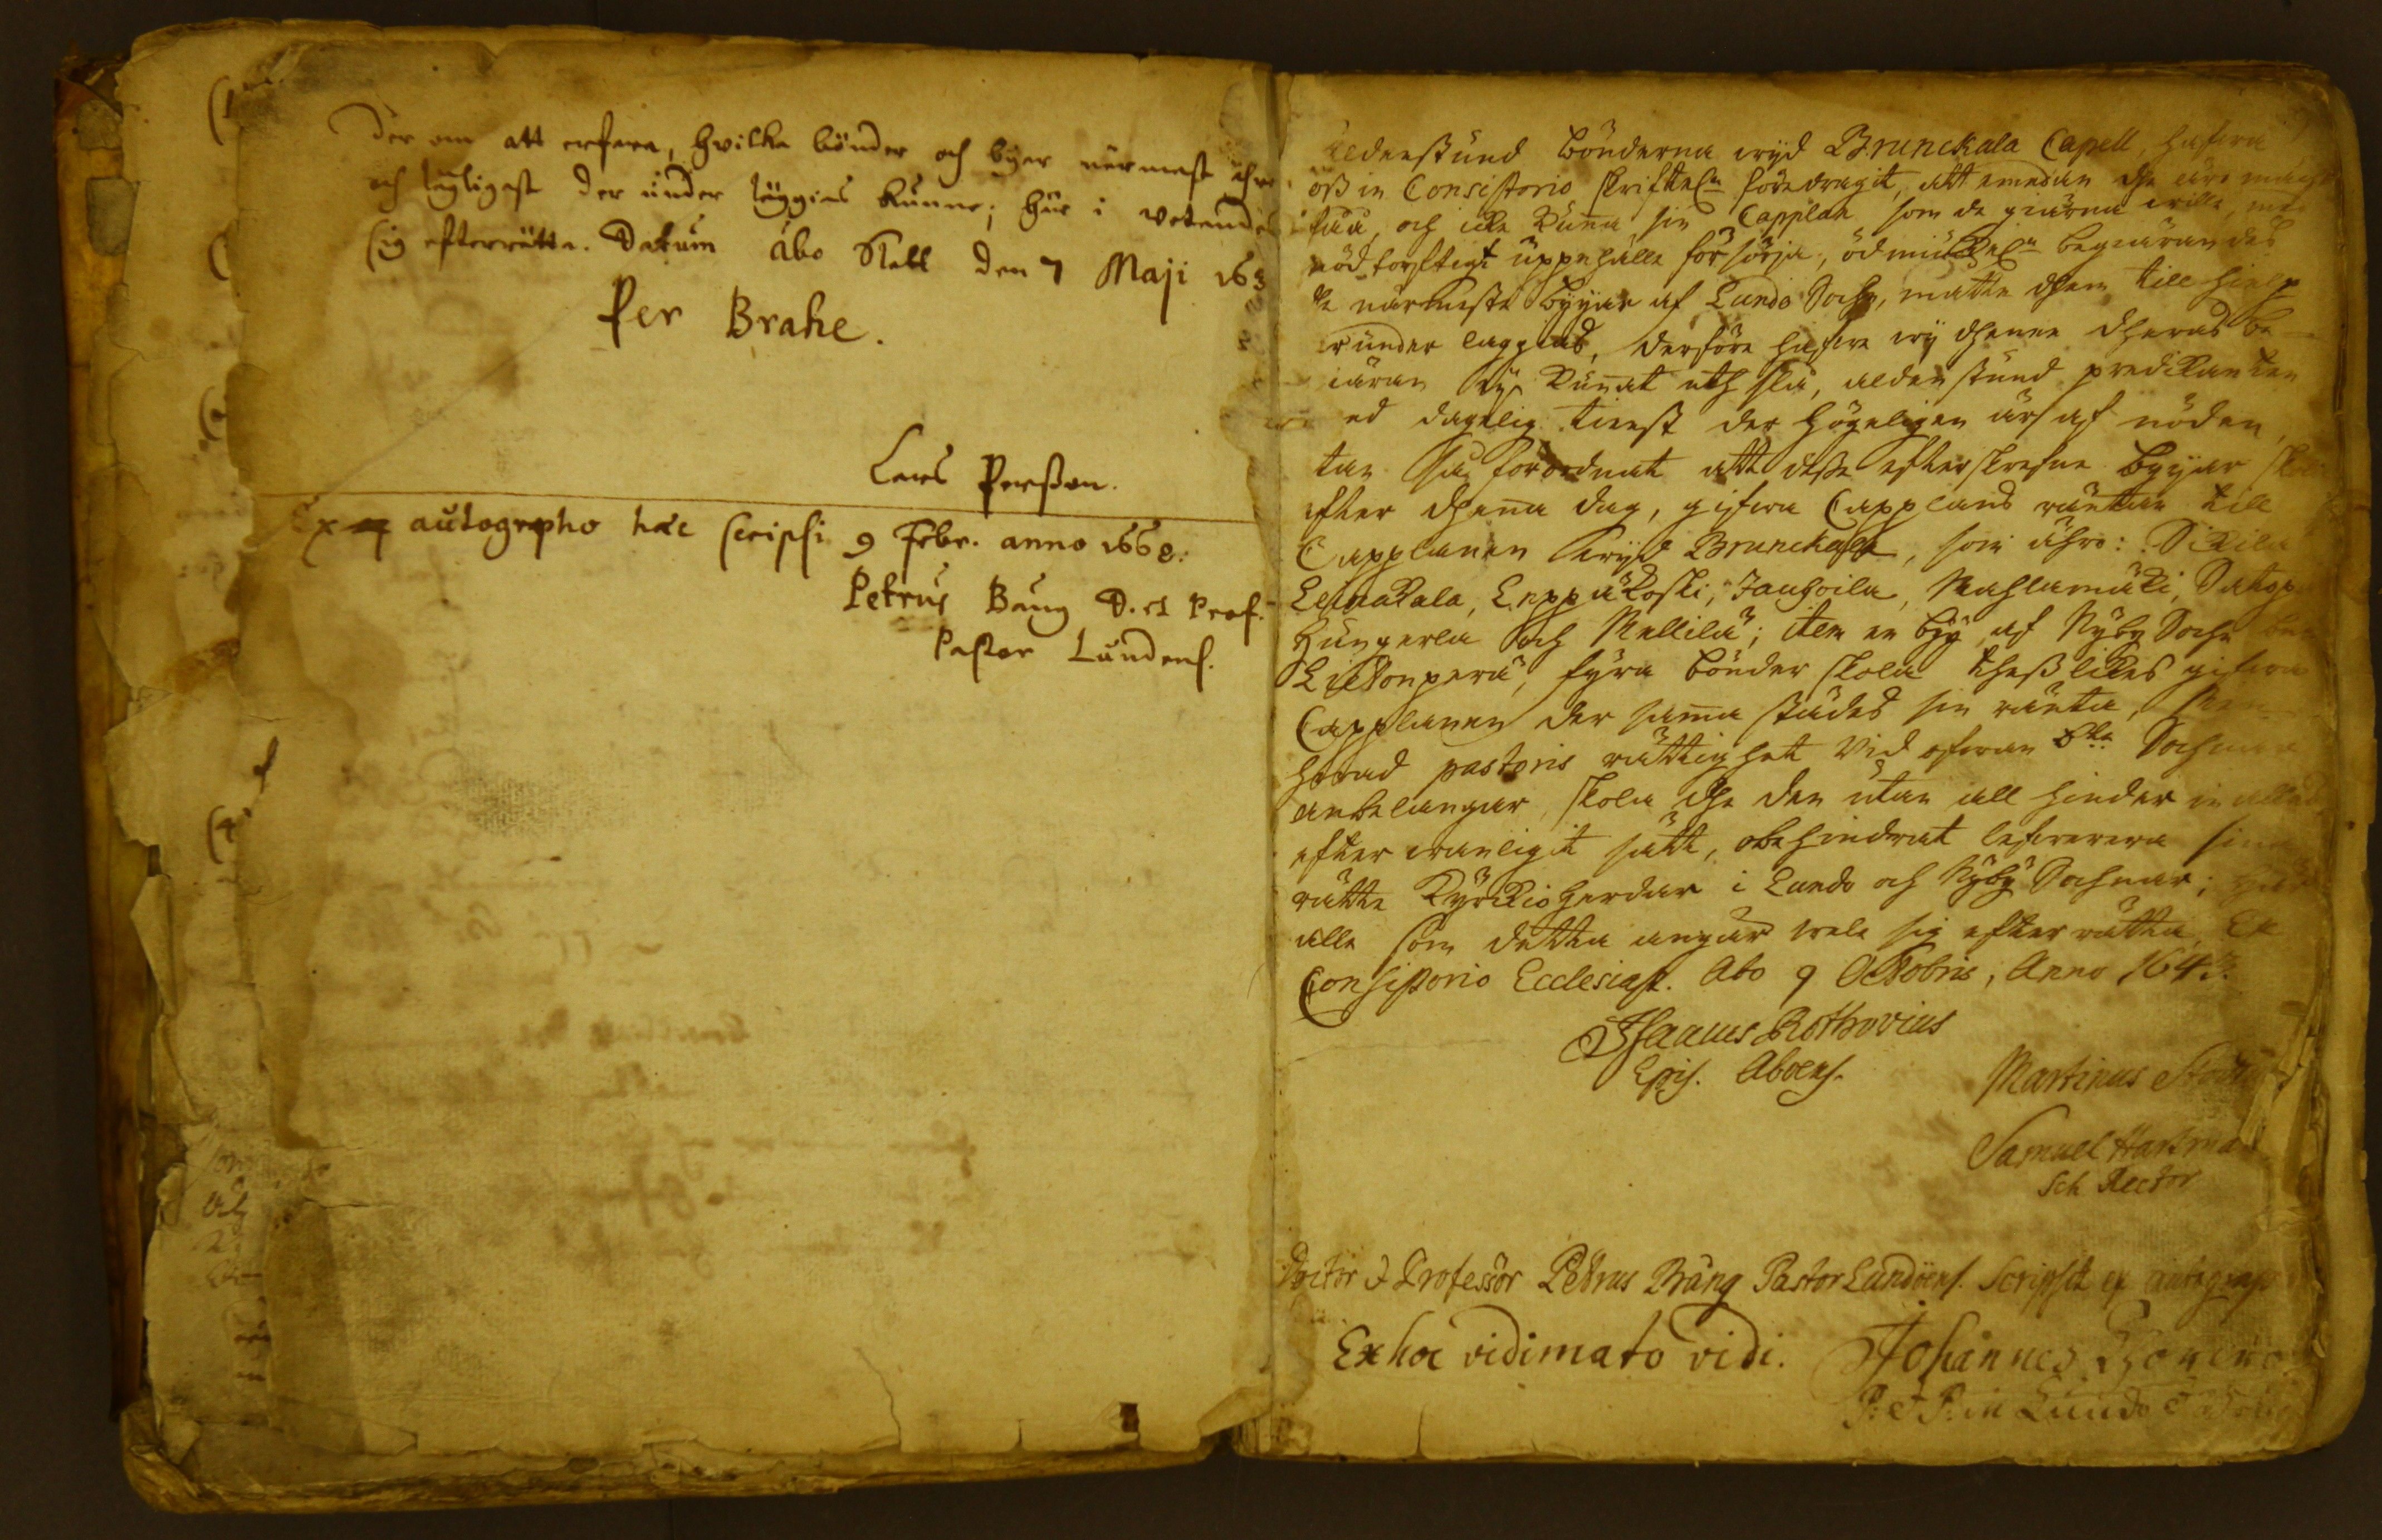 der om att erfara, hvilka bönder och byar närmast ähre
och lägligast der under läggias kunne; hvar i vetandes
sig efterrätta. Datum Åbo Slott den 7 Maji 163
Per Brahe.
Lars Persson.
Ex autographo hæc scripsi 9 Febr. anno 1668.
Petrus Bång D. et Prof.
Pastor Lundens.
aldenstund bönderna wijd Brunckala Capell, hafwa
oss in Consistorio skriftel:n föredragit, att emedan dhe äre
och icke kunna sin Capplan som de giärna wille,
nödtorftigt uppehålla försörja, ödmiukel:n begiärandes
närmeste byyar af Lundo Sochn, måtte dhem till hielp
under läggias, derföre hafwe wij denne dheras be
giäran ey kunnat uthslå, aldenstund predikanten
daglig tienst der högeligen är af nöden,
förordnat att desse efterskrefne byyar
efter denna dag, gifwa Capplans räntan till
Capplanen wijd Brunckala, som ähre:
Leinakala, Leppäkoski, Jauhoila, Mahlamäki,
Hungerla och Mellilä; item en by af Nyby Sochn
fyra bönder skola thesslikes gifwa
Capplanen der samma städes sin ränta,
hwad pastoris rättighet vid ofwan b:te Sochnar
anbelangar, skola dhe den utan all hinder
efter wanligit sätt, obehindrat lefwerera
rätte Kyrkioherdar i Lundo och Nyby Sochnar;
alle som detta angår wele sig efterrätta, Ex
Consistorio Ecclesiast. Åbo 9 Octobris, Anno 164
Isaacus Rothovius
Epis. Aboens.
Martinus
Samuel Hartman
Sch Rector
Doctor & Professor Petrus Bång Pastor Lundoens. Scripsit ex autograp
Ex hoc vidimato vidi. Johannes
P: & P: in Lundo